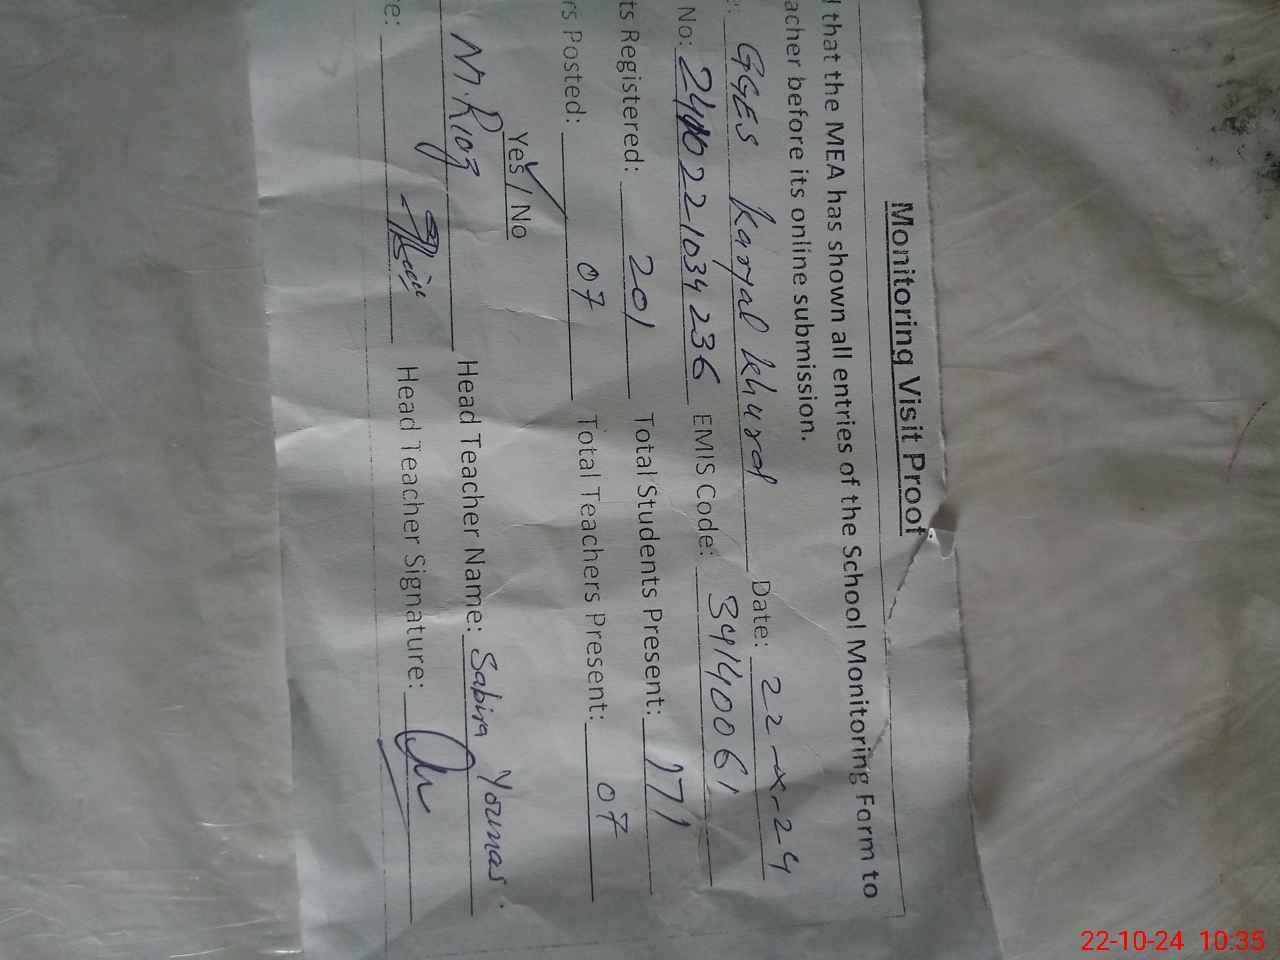 Monitoring Visit Proof
that the MEA has shown all entries of the School Monitoring Form to
acher before its online submission.
e: GGES Karyal Khural Date: 22-x-24
No: 2440221034236 EMIS Code: 34140061
ts Registered: 201 Total Students Present: 171
rs Posted: 07 Total Teachers Present: 07
Yes / No
M. Riaz Head Teacher Name: Sabira Younas.
re: Head Teacher Signature:
22-10-24 10:35